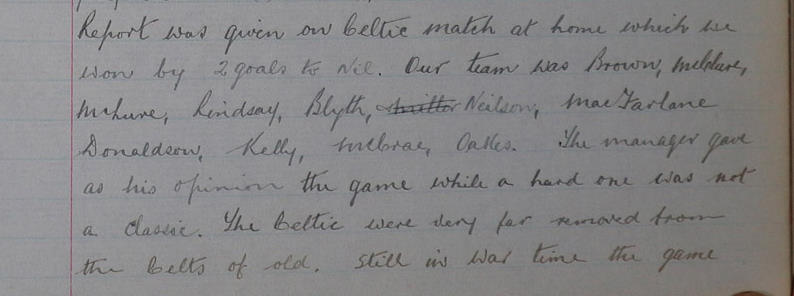 Report was given on Celtic match at home which we
won by 2 goals to Nil. Our team was Brown, McClure,
McLure, Lindsay, Blyth, Neilson, MacFarlane
Donaldson, Kelly, McCrae, Oakes. The manager gave
as his opinion the game while a hard one was not
a classic. The Celtic were very far removed from
the Celts of old. Still in War time the game